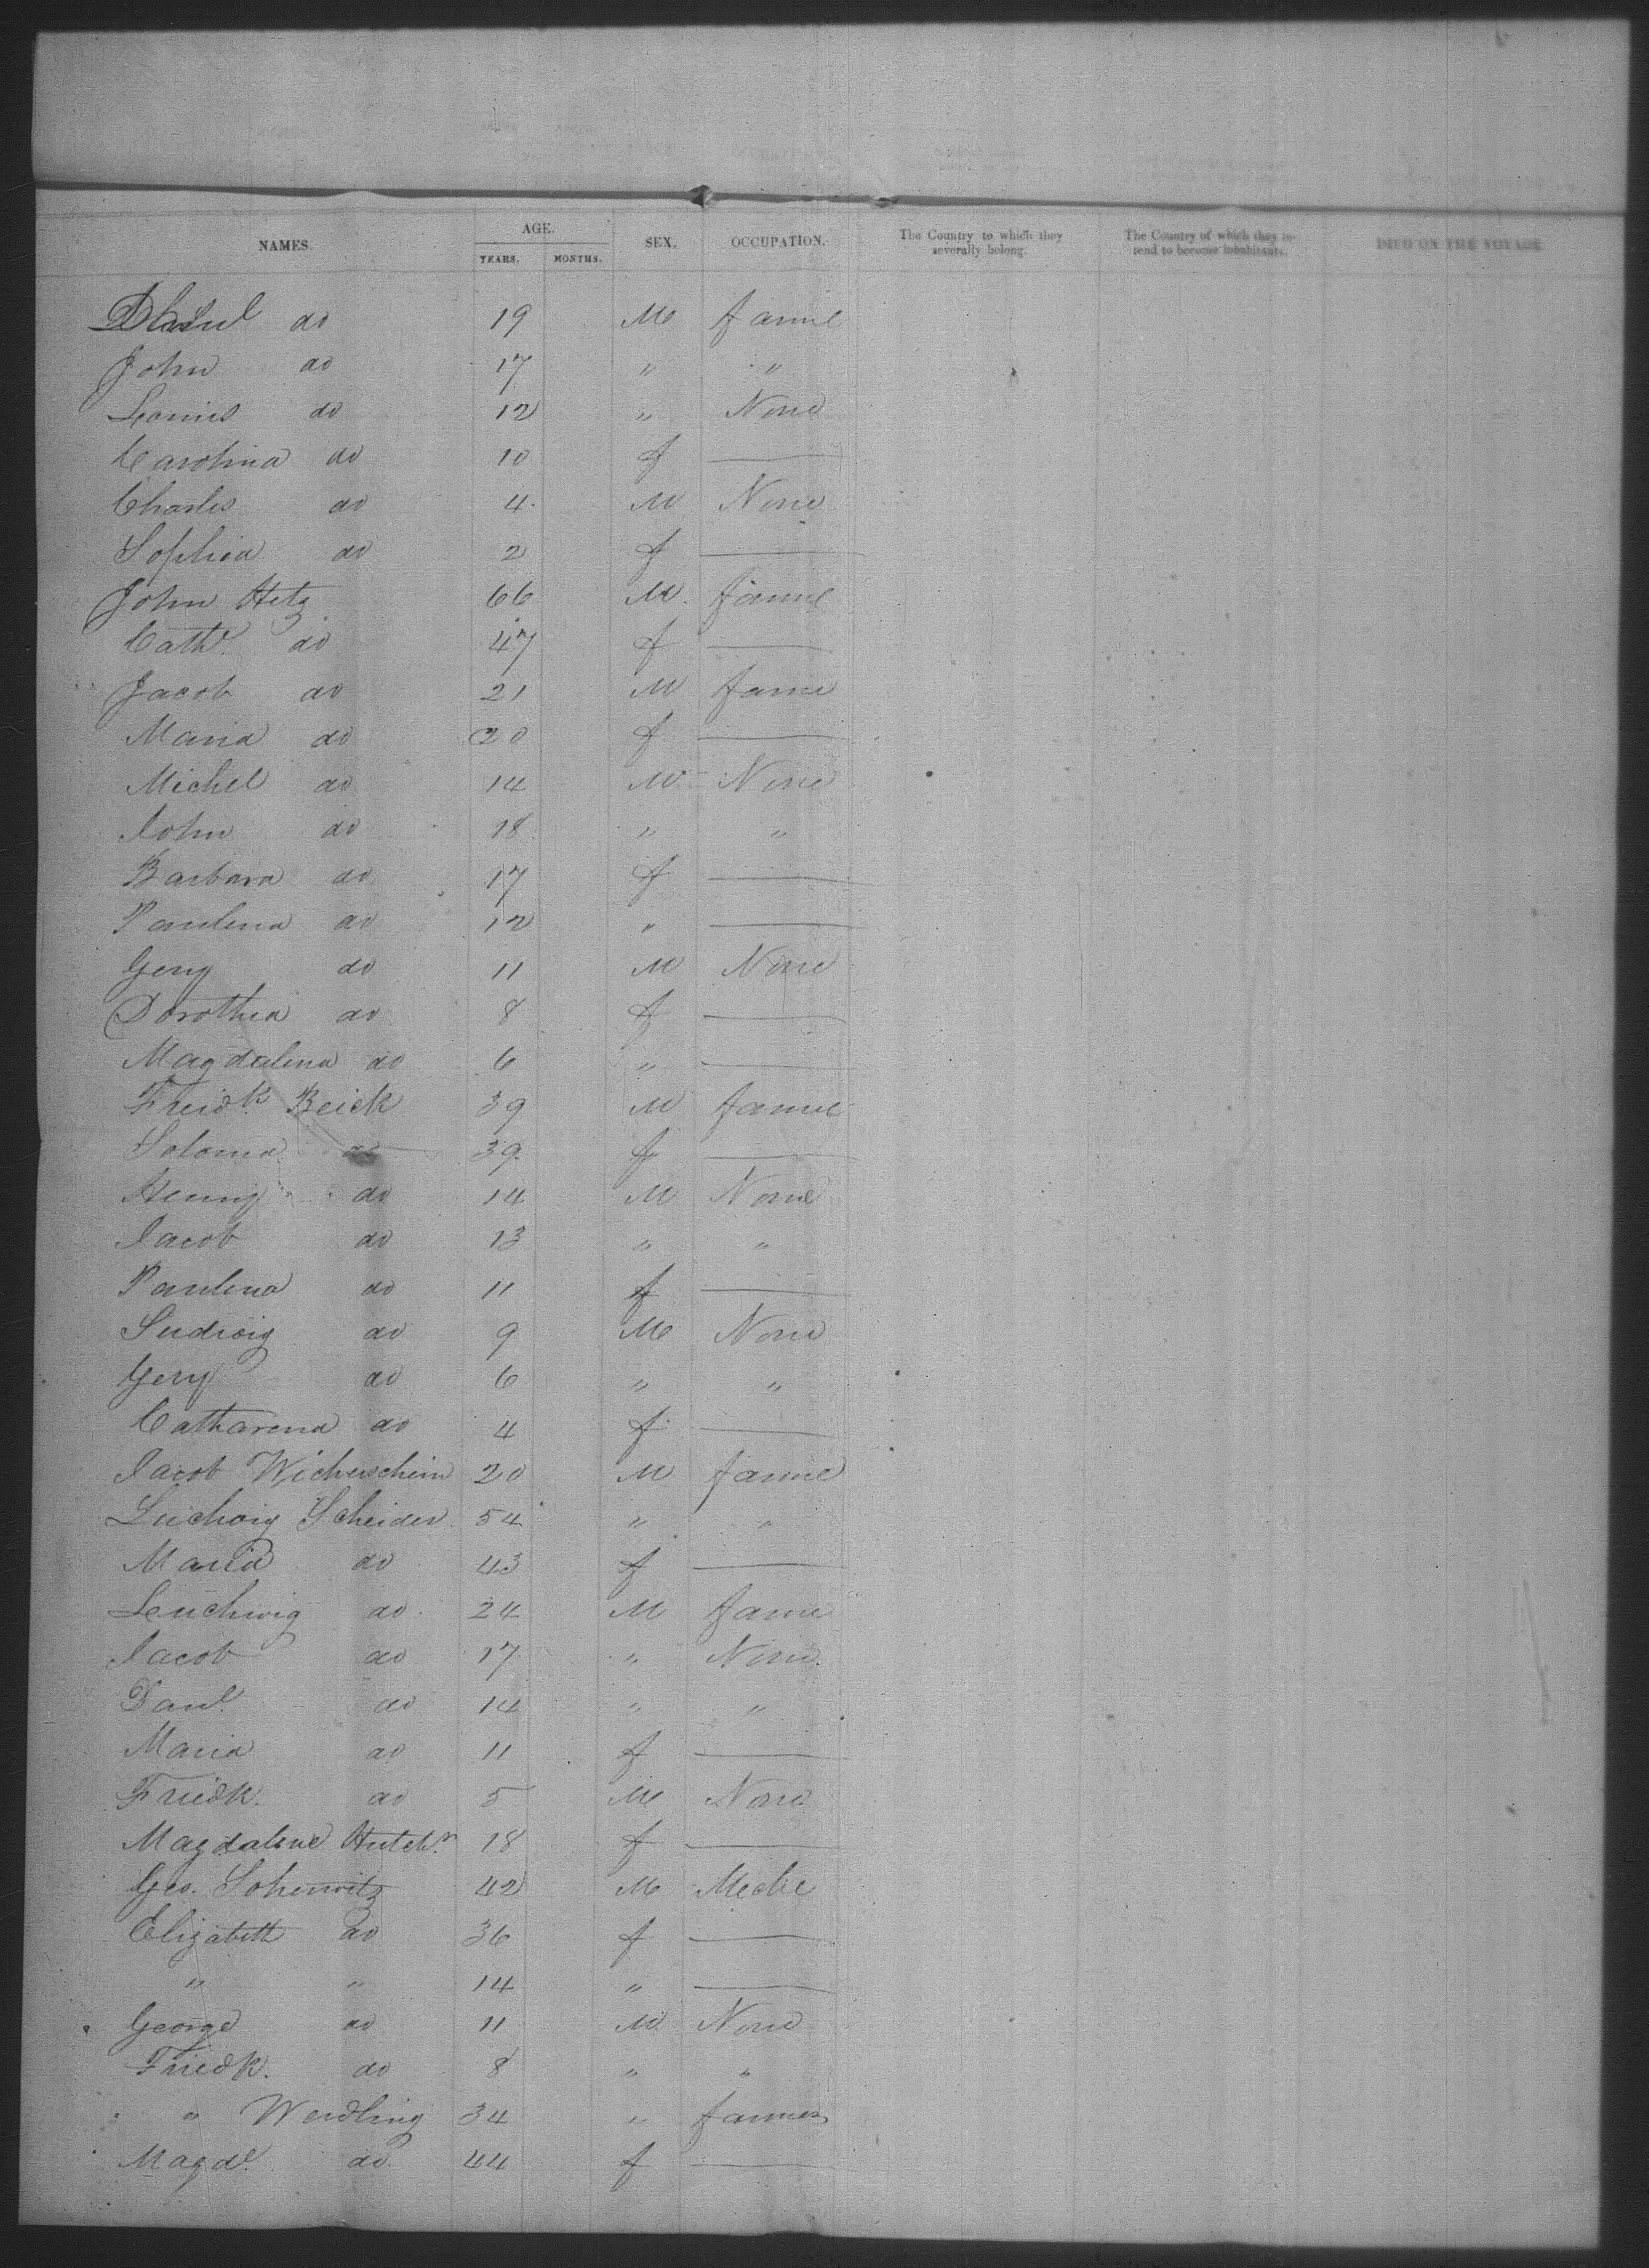 NAMES. AGE. SEX. OCCUPATION. The Country to which they severally belong. The Country of which they intend to become inhabitants. DIED ON THE VOYAGE
YEARS. MONTHS.
do 19 M farme
John do 17 " "
Louis do 12 " None
Carolina do 10 f —
Charles do 4 M None
Sophia do 2 f —
John Hetz 66 M farme
Cath. do 47 f —
Jacob do 21 M farme
Maria do 20 f —
Michel do 14 M None
John do 18 " "
Barbara do 17 f —
Paulina do 12 " —
Georg do 11 M None
Dorothea do 8 f —
Magdalena do 6 " —
Freidk. Beick 39 M farme
Soloma do 39 f —
Henny do 14 M None
Jacob do 13 " "
Paulina do 11 f —
Ludwig do 9 M None
Georg do 6 " "
Catharena do 4 f —
Jacob 20 M farme
Ludwig Scheider 54 " "
Maria do 43 f —
Ludwig do 24 M farme
Jacob do 17 " None
Danl. do 14 " "
Maria do 11 f —
Friedk. do 5 M None
Magdalene 18 f —
Geo. 42 M Mechc
Elizabeth do 36 f —
" " 14 " —
George do 11 M None
Friedk. do 8 " "
" Wendling 34 " farmer
Magde. do 44 f —